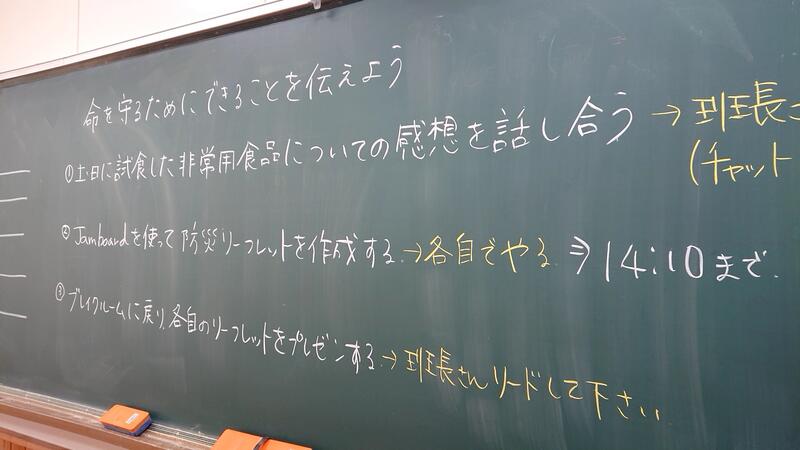 命を守るためにできることを伝えよう
①土日に試食した非常用食品についての感想を話し合う → 班長
(チャット
② Jamboardを使って防災リーフレットを作成する。→各自でやる ⇒14:10まで。
③ ブレイクルームに戻り、各自のリーフレットをプレゼンする→班長さんリードして下さい